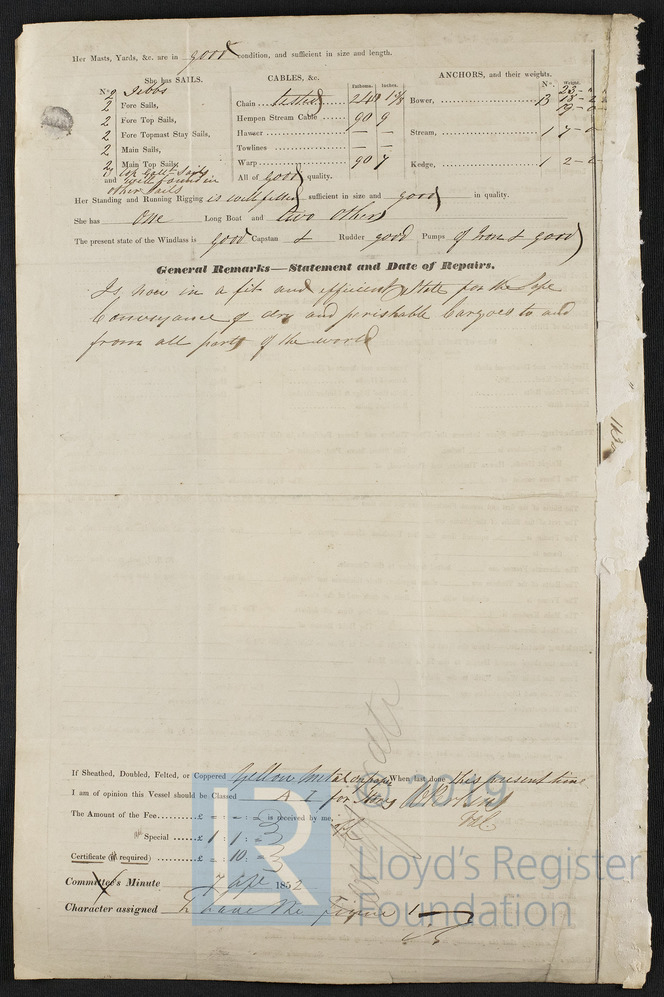 Her Masts, Yards, &c. are in good condition, and sufficient in size and length.
She has SAILS.
CABLES, &c.
ANCHORS, and their weights.
Fathoms. Inches.
No. Weight.
No. 2 Jibbs
2 Fore Sails,
2 Fore Top Sails,
2 Fore Topmast Stay Sails,
2 Main Sails,
2 Main Top Sails,
2 Top Gallt Sails
and well found in
other Sails
Chain tested 240
Hempen Stream Cable 90 9
Hawser — —
Towlines — —
Warp 90 7
All of good quality.
Bower, 3
Stream, 1
Kedge, 1
Her Standing and Running Rigging is well fitted sufficient in size and good in quality.
She has One Long Boat and two others
The present state of the Windlass is good Capstan & Rudder good Pumps of Iron & good
General Remarks—Statement and Date of Repairs.
Is now in a fit and efficient State for the Safe
Conveyance of dry and perishable Cargoes to and
from all parts of the world
If Sheathed, Doubled, Felted, or Coppered Yellow Metal When last done this present time
I am of opinion this Vessel should be Classed A 1 for
The Amount of the Fee £ is received by me,
Special £ 1 : 1 :
Certificate (if required) £ : 10 :
Committee's Minute 7 1852
Character assigned To have the Figure 1
© 2019
Lloyd's Register
Foundation